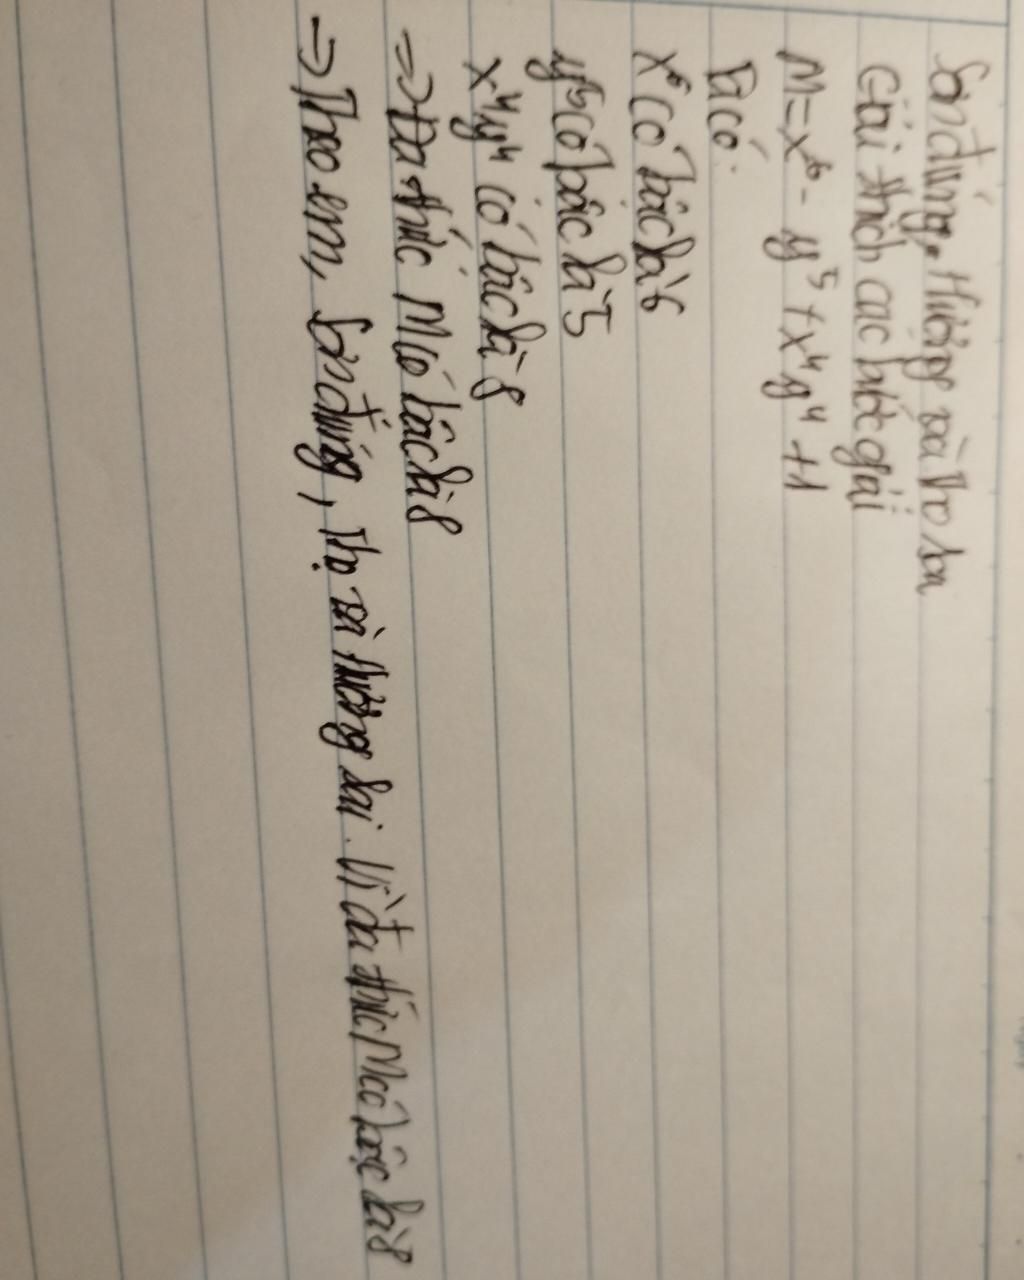 Sơn đúng. Hường và Thọ sai
Giải thích các bước giải
M = x⁶ - y⁵ + x⁴y⁴ + 1
Ta có:
x⁶ có bậc là 6
y⁵ có bậc là 5
x⁴y⁴ có bậc là 8
=> Đa thức M có bậc là 8
=> Theo em, Sơn đúng, Thọ và Hường sai. Vì đa thức M có bậc là 8